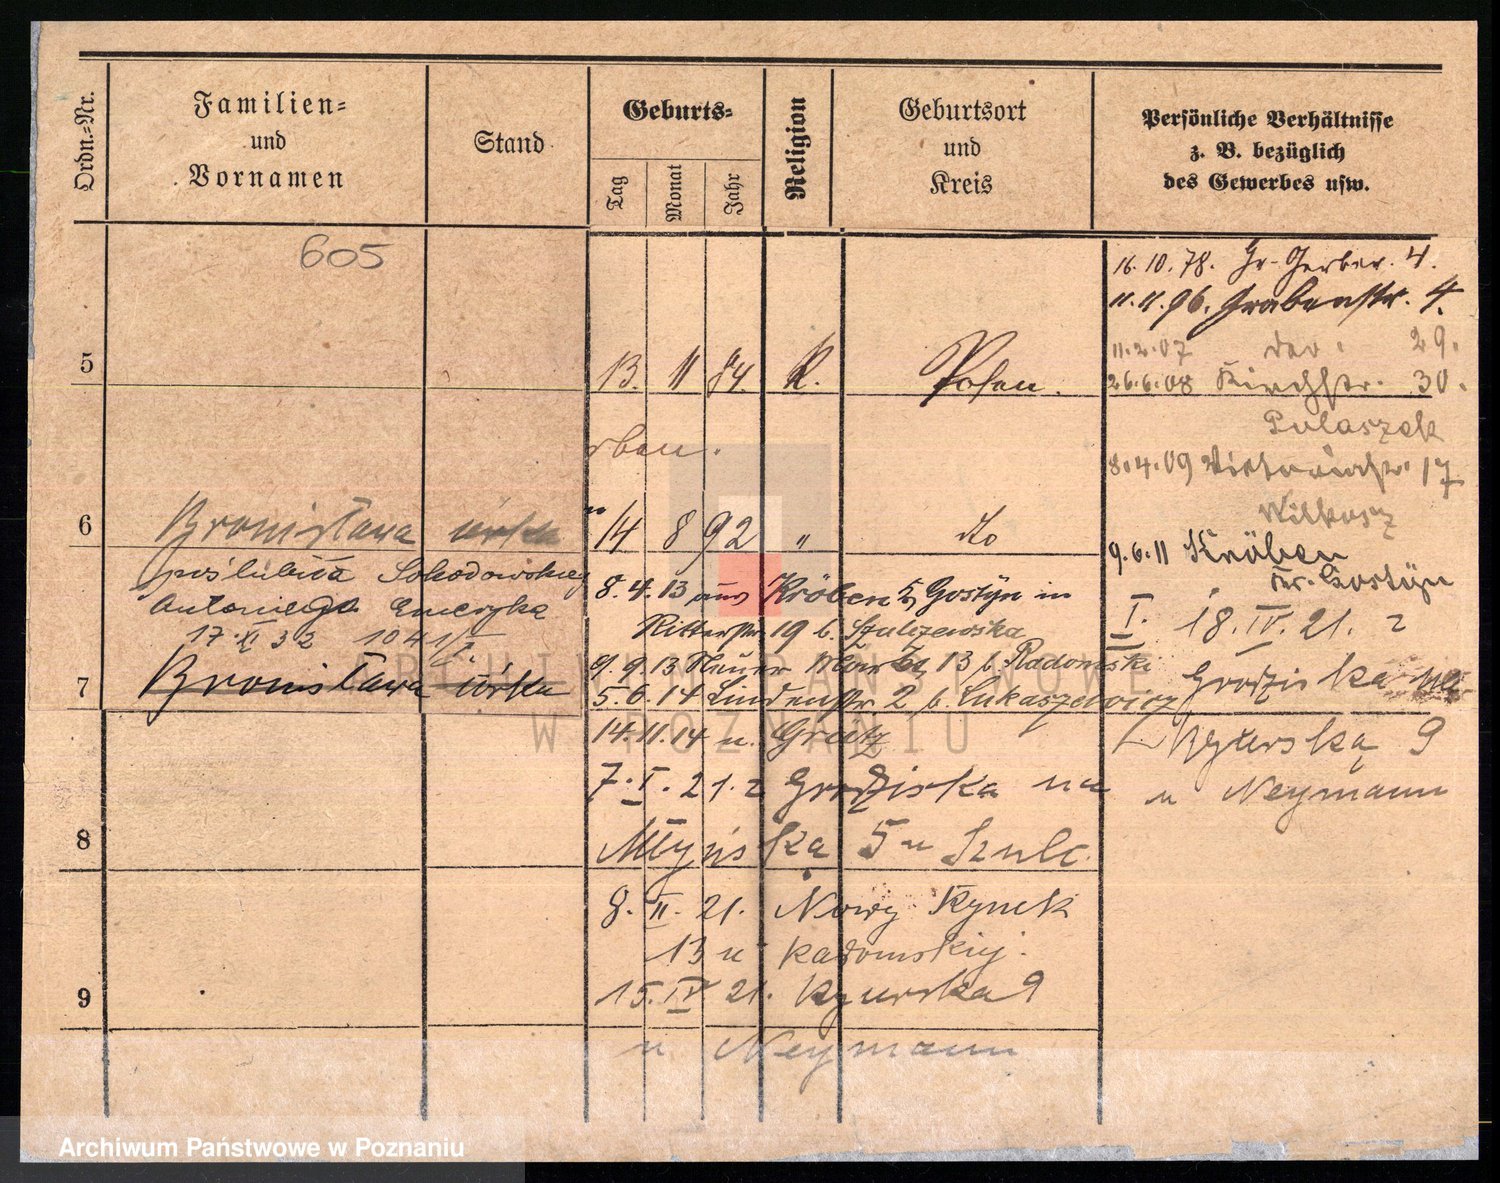 Ordn.-Nr.
Familien-
und
Vornamen
Stand
Geburts-
Tag
Monat
Jahr
Religion
Geburtsort
und
Kreis
Persönliche Verhältnisse
z. B. bezüglich
des Gewerbes usw.
605
16.10.78. Gr-Gerber. 4.
11.11.96. Grabenstr. 4.
11.2.07 29.
5 13. 11 84 K. Posen.
26.6.08 Kirchstr. 30.
Pulaszek
rben.
8.4.09 17
Witkosz
6 Bronisława 14 8 92 "
9.6.11 Kröben
Kr. Gostyn
poślubiła Sobodowskiej
Antoniego Emeryka
17.XI 32 1041/I.
8.4.13 aus Kröben Gostyn in
Ritterstr. 19 b. Szulczewska
I. 18.IV.21. z
9.9.13 Neuer Markt 13 b. Radomski
7 Bronisława córka
5.6.14 Lindenstr. 2 b. Łukaszewicz
Grodziska na
14.11.14 n. Graetz
Rycerską 9
7.I.21. z Grodziska na
u Neymann
8 Młyńską 5 u Szulc.
8.II.21. Nowy Rynek
13 u Radomskiej.
9 15.IV 21. Rycerska 9
u Neymann
ARCHIWUM PAŃSTWOWE
W POZNANIU
Archiwum Państwowe w Poznaniu